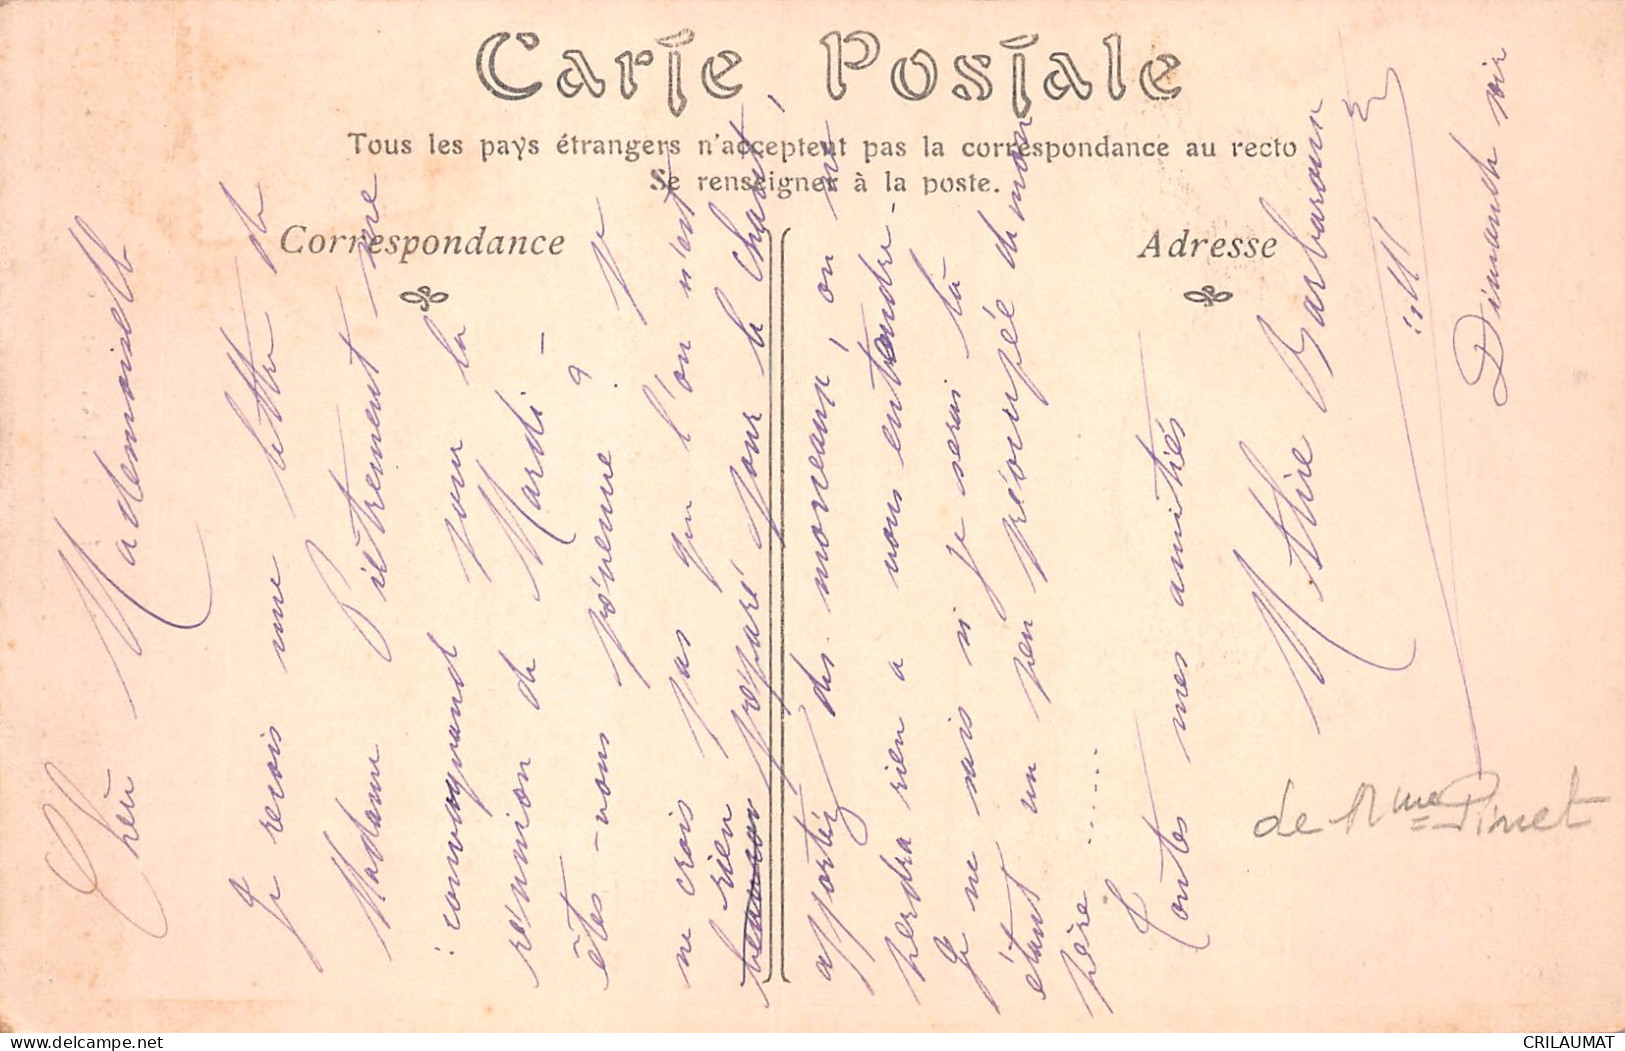 Carte Postale
Tous les pays étrangers n'acceptent pas la correspondance au recto
Se renseigner à la poste.
Correspondance
Adresse
Chère Mademoiselle
Je reçois une lettre de
Madame Piètrement me
convoquand pour la
réunion de Mardi -
êtes-vous prévenue ? Je
ne crois pas que l'on n'est
rien préparé pour le chant,
beaucoup
apportez des morceaux, on ne
perdra rien a nous entendre -
Je ne sais si je serai là
étant un peu préoccupée de mon
père .....
Toutes mes amitiés
Mthre Barbaroux
Dimanche soir
de Mme Pinet
hrs.delcampe.net
CRILAUMAT